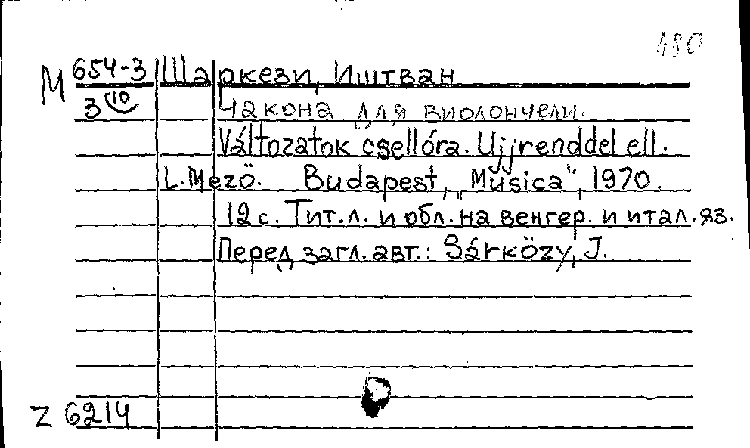 190
М 654-3 Шаркези, Иштван
3 10 Чакона для виолончели.
Változatok csellóra. Ujjrenddel ell.
L. Mező. Budapest, „Musica", 1970.
12 с. Тит. л. и обл. на венгер. и итал. яз.
Перед загл. авт.: Sárközy, J.
Z 6214